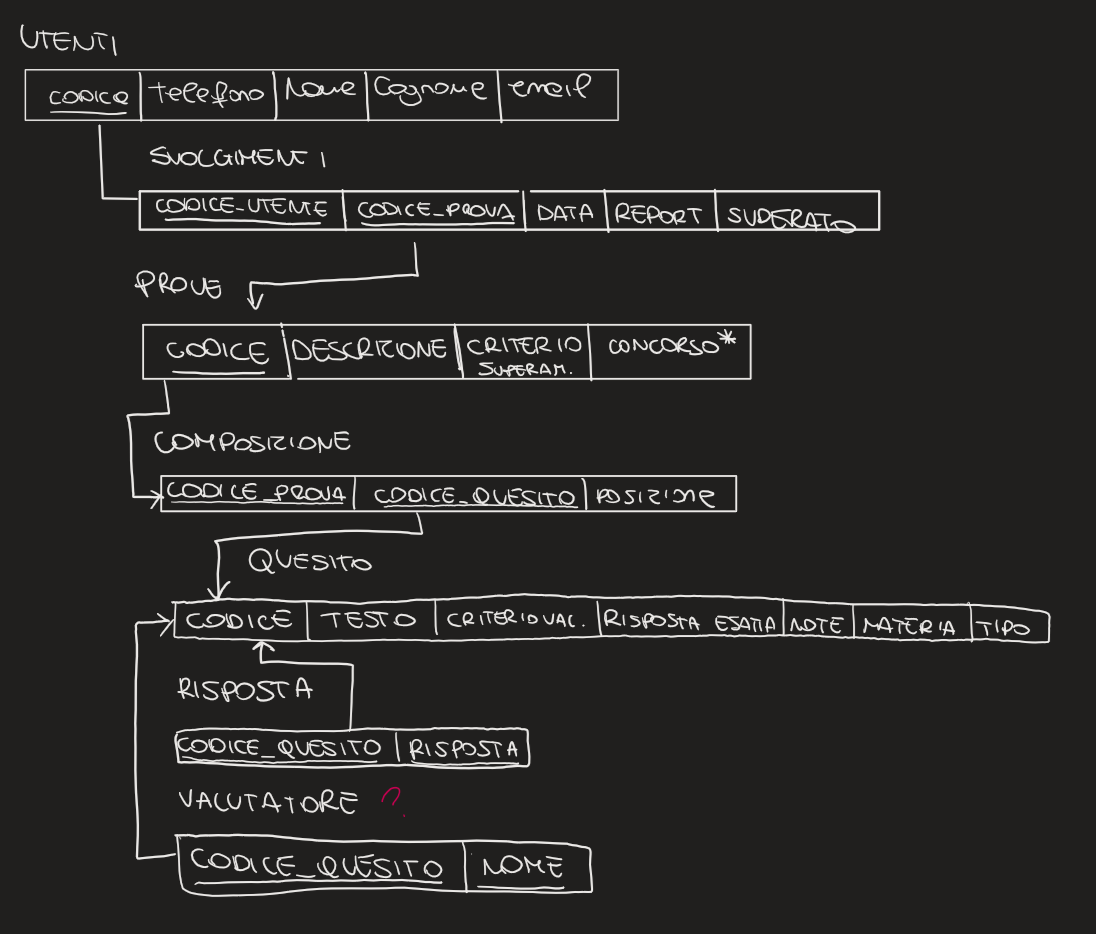 UTENTI
CODICE telefono Nome Cognome email
SVOLGIMENTI
CODICE_UTENTE CODICE_PROVA DATA REPORT SUPERATO
PROVE
CODICE DESCRIZIONE CRITERIO SUPERAM. CONCORSO*
COMPOSIZIONE
CODICE_PROVA CODICE_QUESITO POSIZIONE
QUESITO
CODICE TESTO CRITERIO VAL. RISPOSTA ESATTA NOTE MATERIA TIPO
RISPOSTA
CODICE_QUESITO RISPOSTA
VALUTATORE ?
CODICE_QUESITO NOME